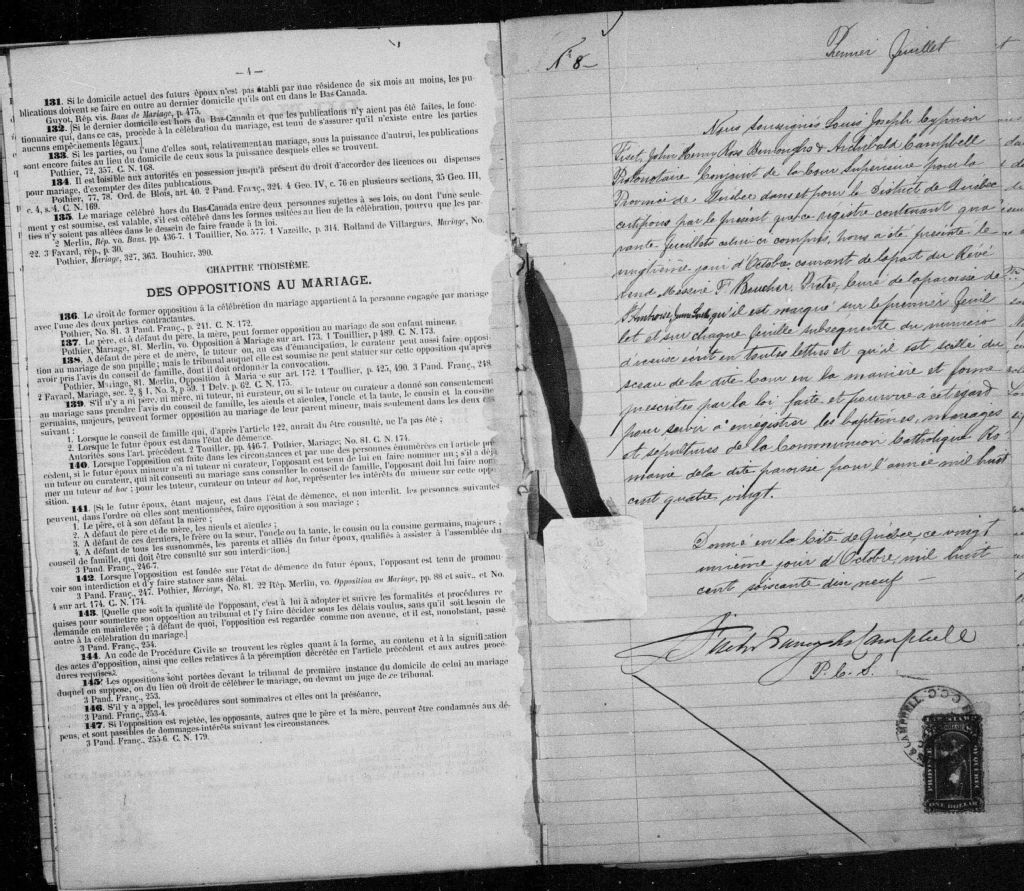 — 4 —
131. Si le domicile actuel des futurs époux n'est pas établi par une résidence de six mois au moins, les pu-
blications doivent se faire en outre au dernier domicile qu'ils ont eu dans le Bas-Canada.
Guyot, Rép. vis. Bans de Mariage, p. 475.
132. [Si le dernier domicile est hors du Bas-Canada et que les publications n'y aient pas été faites, le fonc-
tionnaire qui, dans ce cas, procède à la célébration du mariage, est tenu de s'assurer qu'il n'existe entre les parties
aucuns empêchements légaux.]
133. Si les parties, ou l'une d'elles sont, relativement au mariage, sous la puissance d'autrui, les publications
sont encore faites au lieu du domicile de ceux sous la puissance desquels elles se trouvent.
Pothier, 72, 357. C. N. 168.
134. Il est loisible aux autorités en possession jusqu'à présent du droit d'accorder des licences ou dispenses
pour mariage, d'exempter des dites publications.
Pothier, 77, 78. Ord. de Blois, art. 40. 2 Pand. Franç., 324. 4 Geo. IV, c. 76 en plusieurs sections, 35 Geo. III,
c. 4, s. 4. C. N. 169.
135. Le mariage célébré hors du Bas-Canada entre deux personnes sujettes à ses lois, ou dont l'une seule-
ment y est soumise, est valable, s'il est célébré dans les formes usitées au lieu de la célébration, pourvu que les par-
ties n'y soient pas allées dans le dessein de faire fraude à la loi.
2 Merlin, Rép. vo. Bans. pp. 436-7. 1 Toullier, No. 577. 1 Vazeille, p. 314. Rolland de Villargues, Mariage, No.
22. 3 Favard, rép., p. 30.
Pothier, Mariage, 327, 363. Bouhier. 390.
CHAPITRE TROISIÈME.
DES OPPOSITIONS AU MARIAGE.
136. Le droit de former opposition à la célébration du mariage appartient à la personne engagée par mariage
avec l'une des deux parties contractantes.
Pothier, No. 81. 3 Pand. Franç., p. 241. C. N. 172.
137. Le père, et à défaut du père, la mère, peut former opposition au mariage de son enfant mineur.
Pothier, Mariage, 81. Merlin, vo. Opposition à Mariage sur art. 173. 1 Toullier, p 489. C. N. 173.
138. A défaut de père et de mère, le tuteur ou, au cas d'émancipation, le curateur peut aussi faire opposi-
tion au mariage de son pupille; mais le tribunal auquel elle est soumise ne peut statuer sur cette opposition qu'après
avoir pris l'avis du conseil de famille, dont il doit ordonner la convocation.
Pothier, Mariage, 81. Merlin, Opposition à Mariage sur art. 172. 1 Toullier, p. 425, 490. 3 Pand. Franç., 248.
2 Favard, Mariage, sec. 2, § 1, No. 3, p 59. 1 Delv. p. 62. C. N. 175.
139. S'il n'y a ni père, ni mère, ni tuteur, ni curateur, ou si le tuteur ou curateur a donné son consentement
au mariage sans prendre l'avis du conseil de famille, les aïeuls et aïeules, l'oncle et la tante, le cousin et la cousine
germains, majeurs, peuvent former opposition au mariage de leur parent mineur, mais seulement dans les deux cas
suivant :
1. Lorsque le conseil de famille qui, d'après l'article 122, aurait du être consulté, ne l'a pas été ;
2. Lorsque le futur époux est dans l'état de démence.
Autorités sous l'art. précédent. 2 Toullier. pp. 446-7. Pothier, Mariage; No. 81. C. N. 174.
140. Lorsque l'opposition est faite dans les circonstances et par une des personnes énumérées en l'article pré-
cédent, si le futur époux mineur n'a ni tuteur ni curateur, l'opposant est tenu de lui en faire nommer un ; s'il a déjà
un tuteur ou curateur, qui ait consenti au mariage sans consulter le conseil de famille, l'opposant doit lui faire nom-
mer un tuteur ad hoc ; pour les tuteur, curateur ou tuteur ad hoc, représenter les intérêts du mineur sur cette oppo-
sition.
141. [Si le futur époux, étant majeur, est dans l'état de démence, et non interdit, les personnes suivantes
peuvent, dans l'ordre où elles sont mentionnées, faire opposition à son mariage ;
1. Le père, et à son défaut la mère ;
2. A défaut de père et de mère, les aïeuls et aïeules ;
3. A défaut de ces derniers, le frère ou la sœur, l'oncle ou la tante, le cousin ou la cousine germains, majeurs ;
4. A défaut de tous les susnommés, les parents et alliés du futur époux, qualifiés à assister à l'assemblée du
conseil de famille, qui doit être consulté sur son interdiction.]
3 Pand. Franç., 246-7.
142. Lorsque l'opposition est fondée sur l'état de démence du futur époux, l'opposant est tenu de promou-
voir son interdiction et d'y faire statuer sans délai.
3 Pand. Franç., 247. Pothier, Mariage, No. 81. 22 Rép. Merlin, vo. Opposition au Mariage, pp. 88 et suiv., et No.
4 sur art. 174. C. N. 174.
143. [Quelle que soit la qualité de l'opposant, c'est à lui à adopter et suivre les formalités et procédures re-
quises pour soumettre son opposition au tribunal et l'y faire décider sous les délais voulus, sans qu'il soit besoin de
demande en mainlevée ; à défaut de quoi, l'opposition est regardée comme non avenue, et il est, nonobstant, passé
outre à la célébration du mariage.]
3 Pand. Franç., 254.
144. Au code de Procédure Civile se trouvent les règles quant à la forme, au contenu et à la signification
des actes d'opposition, ainsi que celles relatives à la péremption décrétée en l'article précédent et aux autres procé-
dures requises.
145. Les oppositions sont portées devant le tribunal de première instance du domicile de celui au mariage
duquel on suppose, ou du lieu où doit se célébrer le mariage, ou devant un juge de ce tribunal.
3 Pand. Franç., 253.
146. S'il y a appel, les procédures sont sommaires et elles ont la préséance.
3 Pand. Franç., 253-4.
147. Si l'opposition est rejetée, les opposants, autres que le père et la mère, peuvent être condamnés aux dé-
pens, et sont passibles de dommages-intérêts suivant les circonstances.
3 Pand. Franç., 255-6. C. N. 179.
No 8
Premier feuillet
Nous soussignés Louis Joseph Cyprien
Fiset, John Henry Ross Burroughs & Archibald Campbell
Protonotaire Conjoint de la Cour Supérieure pour la
Province de Québec dans et pour le District de Québec
certifions que le présent registre contenant qua
rante feuillets celui ci compris, nous a été présenté le
vingtième jour d'Octobre courant de la part du Révé
rend Messire F Boucher, Prêtre, Curé de la paroisse de
St Ambroise qu'il est marqué sur le premier feuil
let et sur chaque feuille subséquente du numéro
d'icelui écrit en toutes lettres et qu'il est scellé du
sceau de la dite Cour en la manière et forme
prescrites par la loi faite et pourvue à cet égard
pour servir à enregistrer les baptêmes, mariages
et sépultures de la Communion Catholique Ro
maine de la dite paroisse pour l'année mil huit
cent quatre vingt.
Donné en la Cité de Québec, ce vingt
unième jour d'Octobre, mil huit
cent soixante dix neuf —
Fiset Burroughs Campbell
P. C. S.
& CAMPBELL C.C.C.
ONE DOLLAR